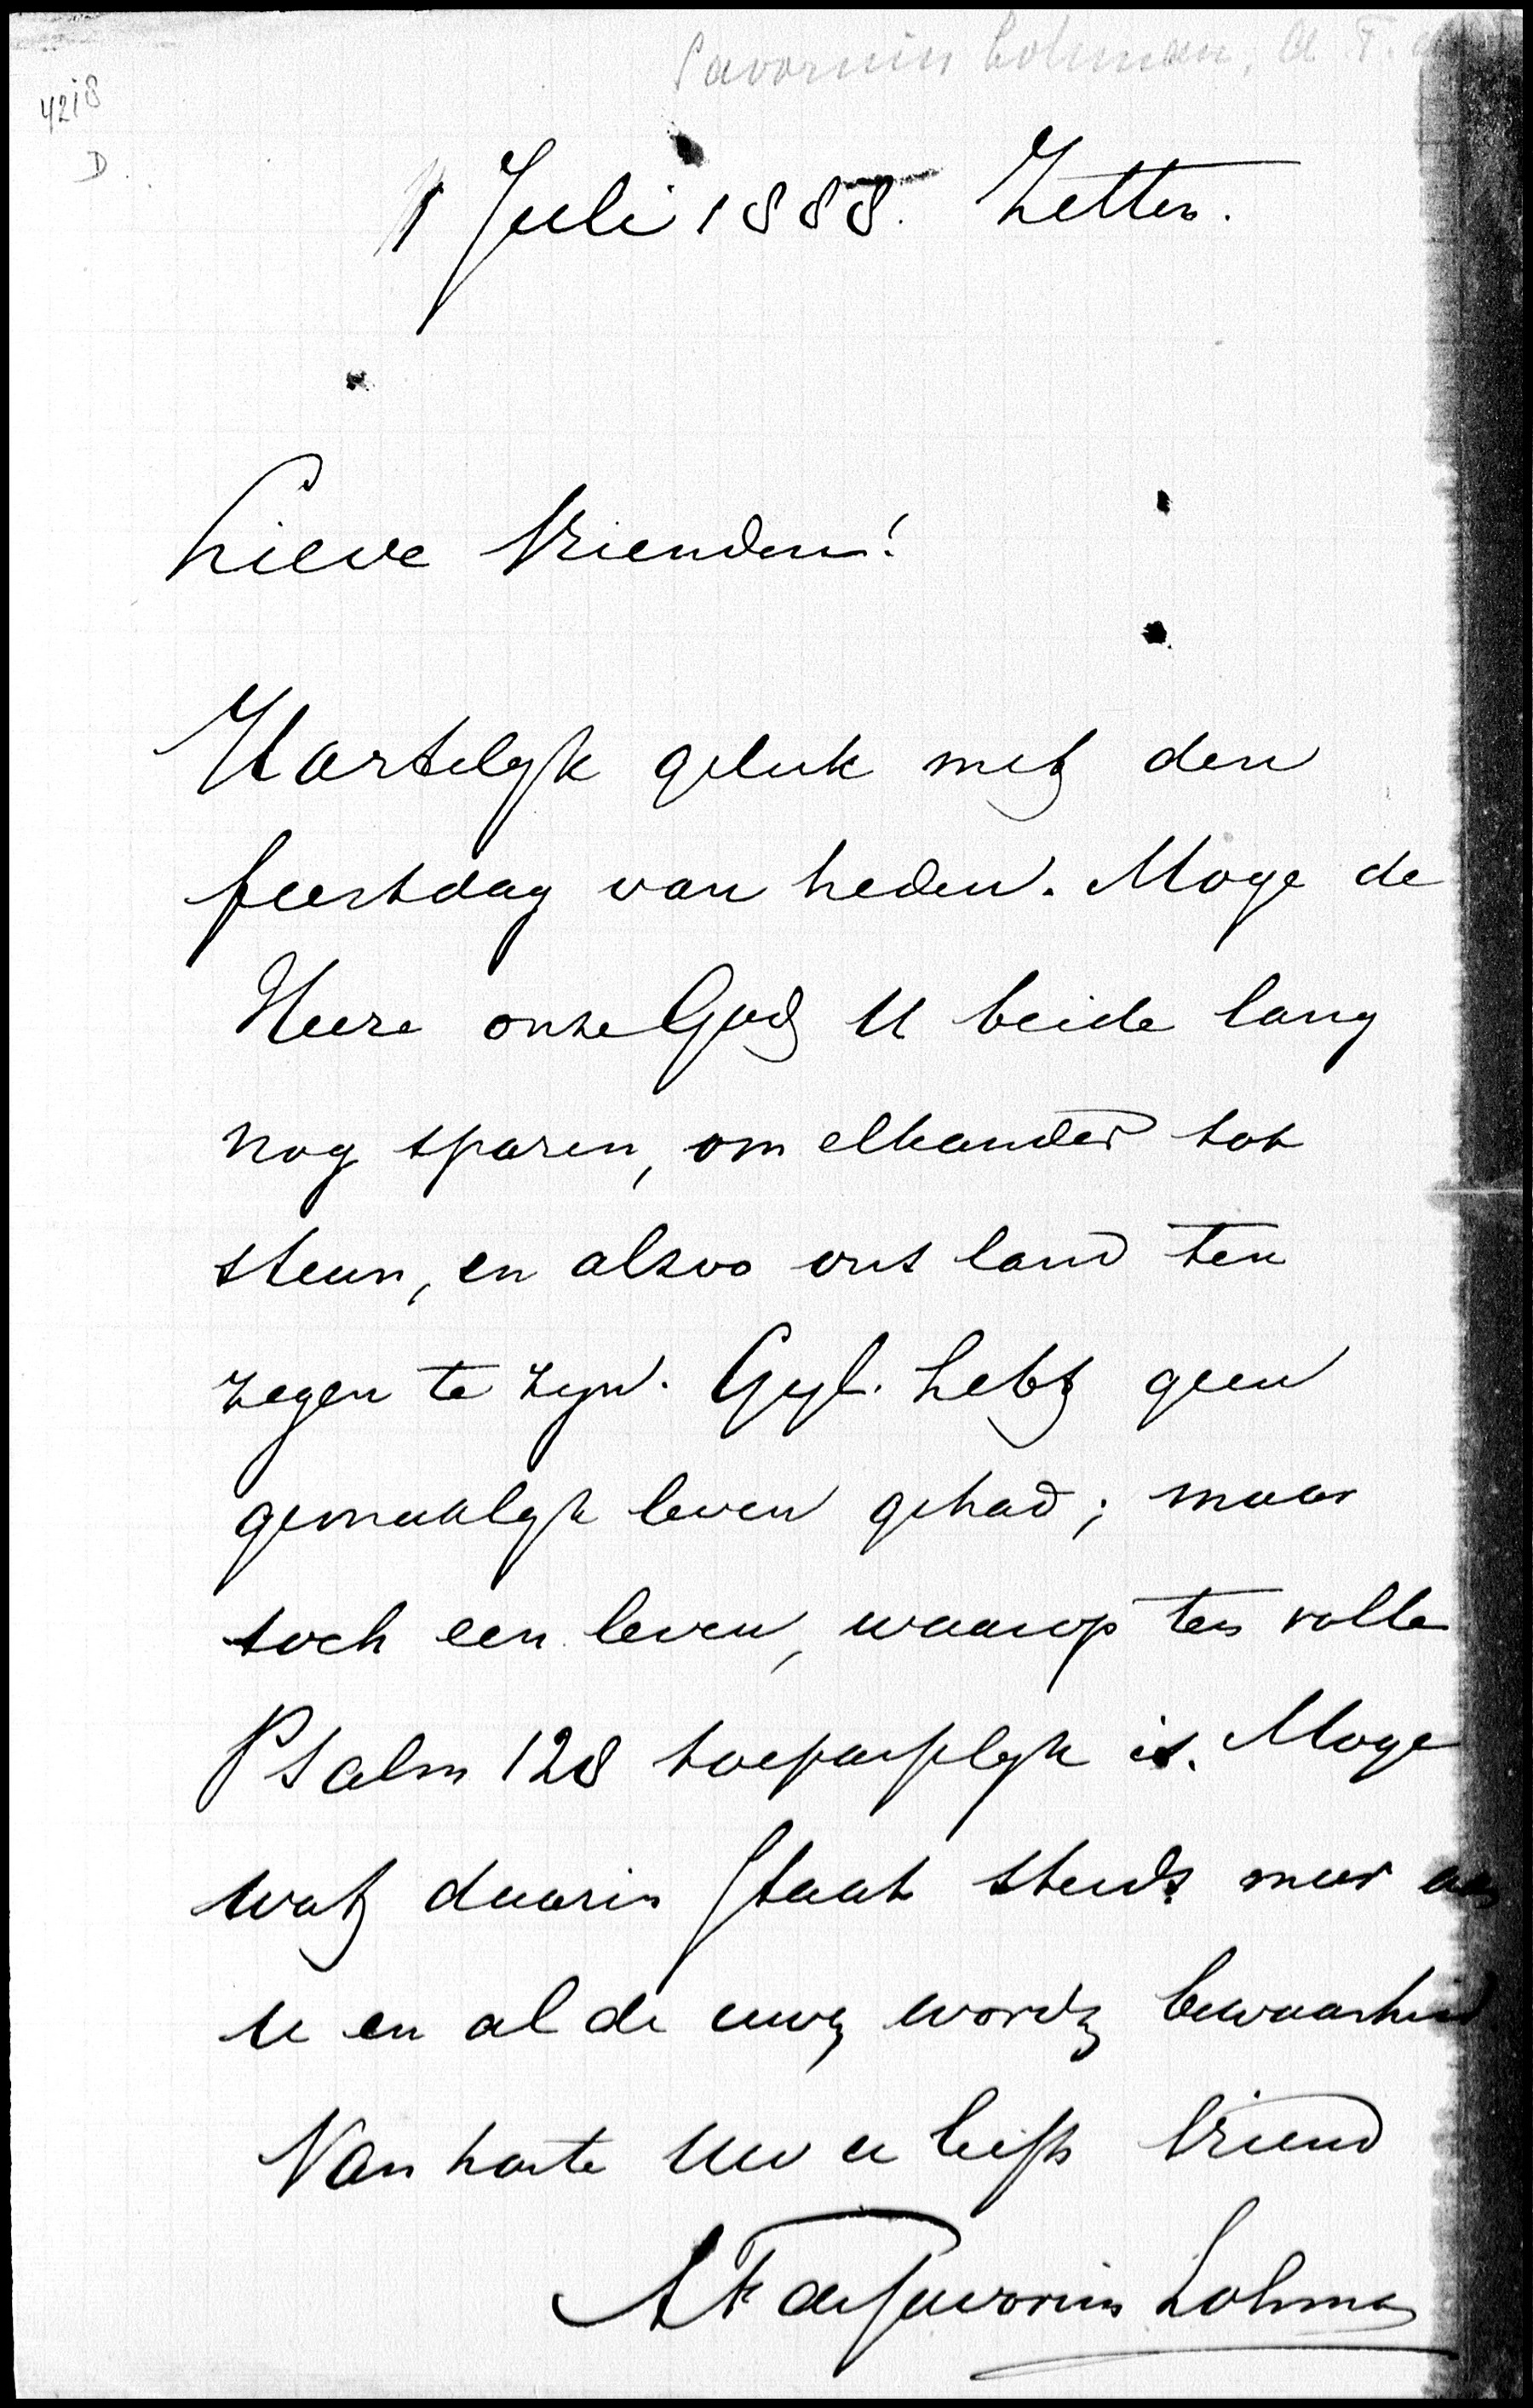 Savornin Lohman, A. F. de
4218
D.
1 Juli 1888. Zetten.
Lieve Vrienden!
Hartelyk geluk met den
feestdag van heden. Moge de
Heere onze God U beide lang
nog sparen, om elkander tot
steun, en alzoo ons land ten
zegen te zyn. Gyl. hebt geen
gemaklyk leven gehad; maar
toch een leven, waarop ten volle
Psalm 128 toepasselyk is. Moge
wat daarin staat steeds meer aan
U en al de uwe wordn bewaarheid
Van harte Uw u liefh Vriend
A F de Savornin Lohman